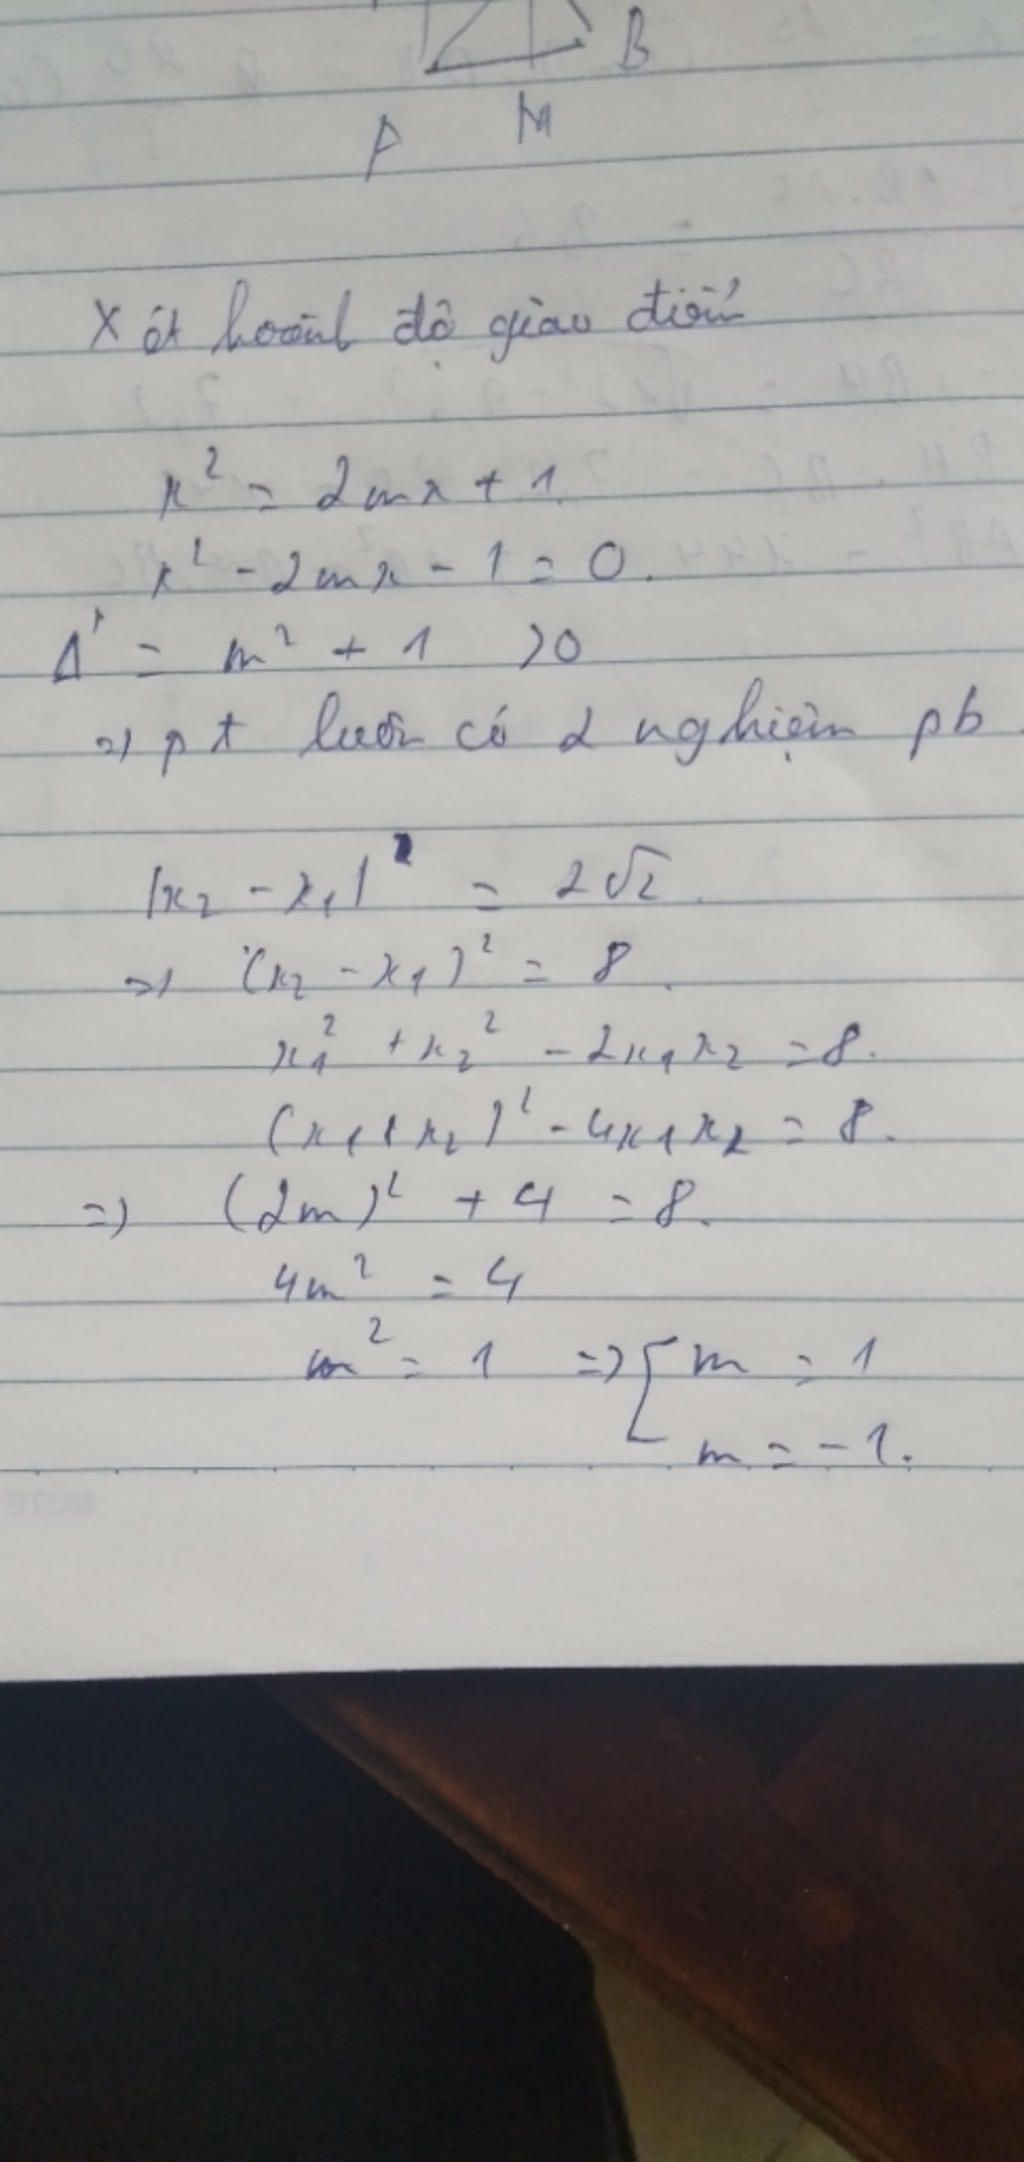 B
A M
Xét hoành độ giao điểm
x² = 2mx + 1
x² - 2mx - 1 = 0.
Δ' = m² + 1 > 0
=> pt luôn có 2 nghiệm pb
|x₂ - x₁| = 2√2.
=> (x₂ - x₁)² = 8.
x₁² + x₂² - 2x₁x₂ = 8.
(x₁ + x₂)² - 4x₁x₂ = 8.
=> (2m)² + 4 = 8.
4m² = 4
m² = 1 => [ m = 1
m = -1.